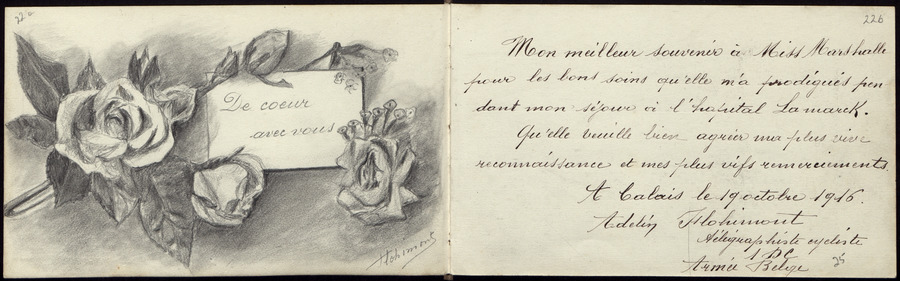 22a
De coeur
avec vous
Flohimont
226
Mon meilleur souvenir à Miss Marshall
pour les bons soins qu'elle m'a prodigués pen
dant mon séjour à l'hôpital Lamarck.
Qu'elle veuille bien agréer ma plus vive
reconnaissance et mes plus vifs remerciements.
A Calais le 19 octobre 1916.
Adelin Flohimont
télégraphiste cycliste
1 DC
Armée Belge
25